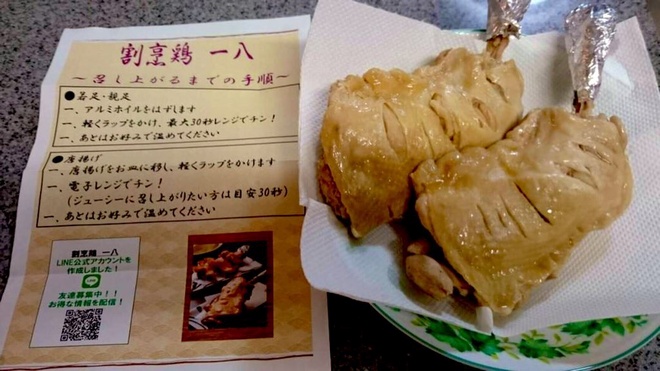 割烹鶏 一八
～召し上がるまでの手順～
●若足・親足
一、アルミホイルをはずします
一、軽くラップをかけ、最大30秒レンジでチン！
一、あとはお好みで温めてください
●唐揚げ
一、唐揚げをお皿に移し、軽くラップをかけます
一、電子レンジでチン！
(ジューシーに召し上がりたい方は目安30秒)
一、あとはお好みで温めてください
割烹鶏 一八
LINE公式アカウントを
作成しました！
友達募集中！！
お得な情報を配信！